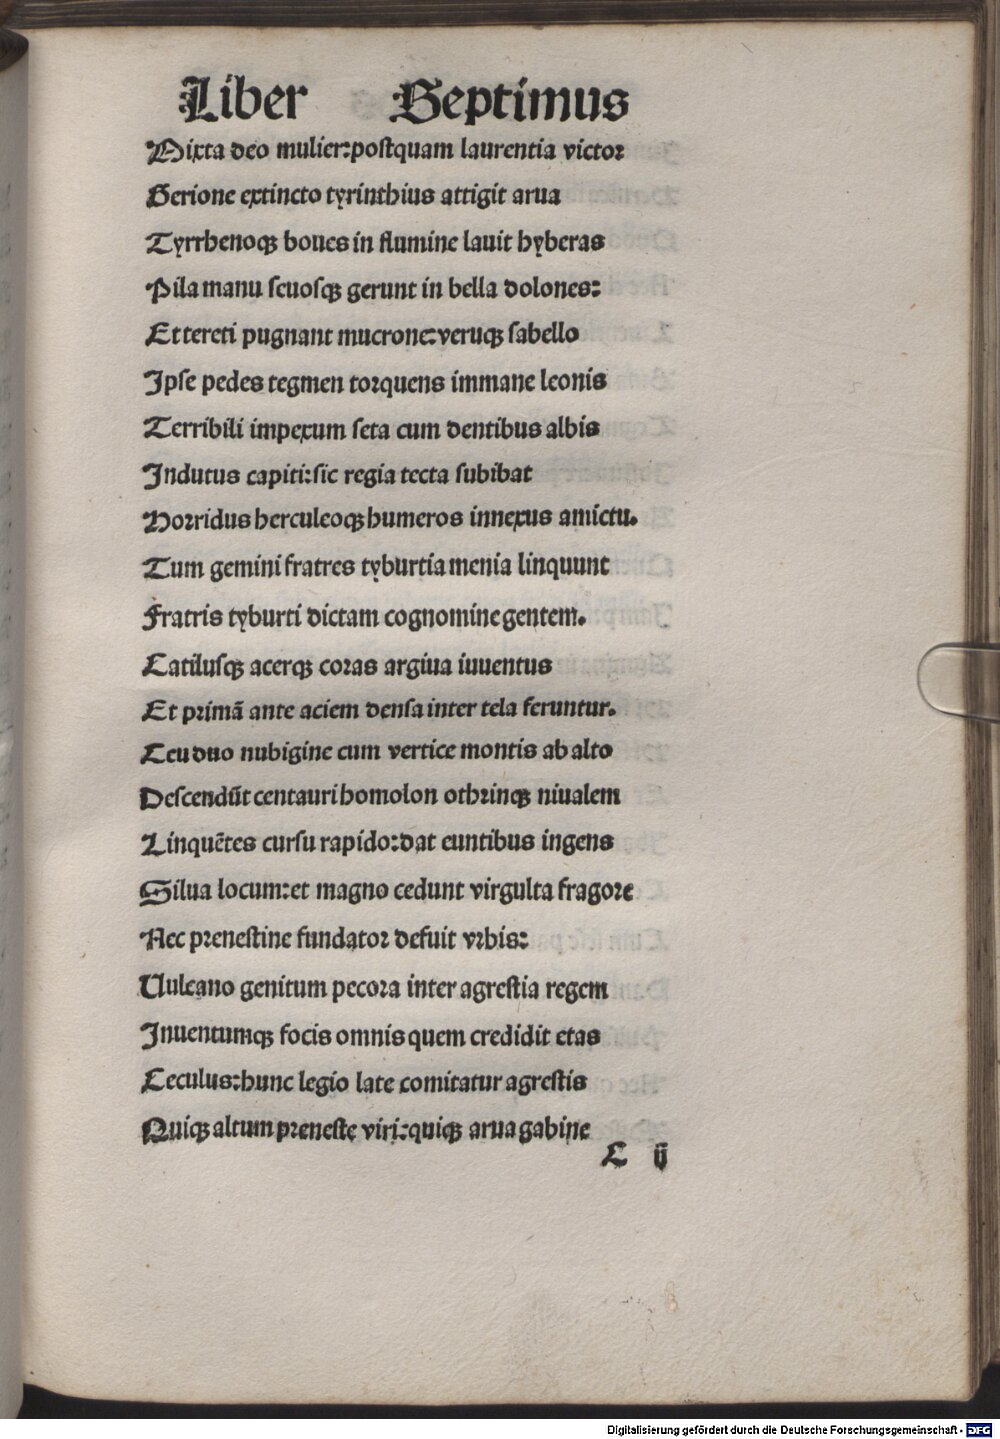 Liber Septimus
Mixta deo mulier:postquam laurentia victor
Gerione extincto tyrinthius attigit arua
Tyrrhenoqꝫ boues in flumine lauit hyberas
Pila manu seuosqꝫ gerunt in bella dolones:
Et tereti pugnant mucrone:veruqꝫ sabello
Ipse pedes tegmen torquens immane leonis
Terribili impexum seta cum dentibus albis
Indutus capiti:sic regia tecta subibat
Horridus herculeoqꝫ humeros innexus amictu.
Tum gemini fratres tyburtia menia linquunt
Fratris tyburti dictam cognomine gentem.
Catilusqꝫ acerqꝫ coras argiua iuuentus
Et primā ante aciem densa inter tela feruntur.
Ceu duo nubigine cum vertice montis ab alto
Descendūt centauri homolon othrinqꝫ niualem
Linquētes cursu rapido:dat euntibus ingens
Silua locum:et magno cedunt virgulta fragore
Nec prenestine fundator defuit vrbis:
Vulcano genitum pecora inter agrestia regem
Inuentumqꝫ focis omnis quem credidit etas
Ceculus:hunc legio late comitatur agrestis
Quiqꝫ altum preneste viri:quiqꝫ arua gabine
C ij
Digitalisierung gefördert durch die Deutsche Forschungsgemeinschaft - DFG